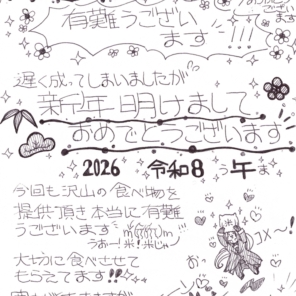 有難うござい
ます!!!
遅く成ってしまいましたが
新年明けまして
おめでとうございます
2026 令和8 午
今回も沢山の食べ物を
提供頂き本当に有難
うございます
うおー!米!米じゃー
コメ〜!
おっ
大切に食べさせて
もらえてます!!